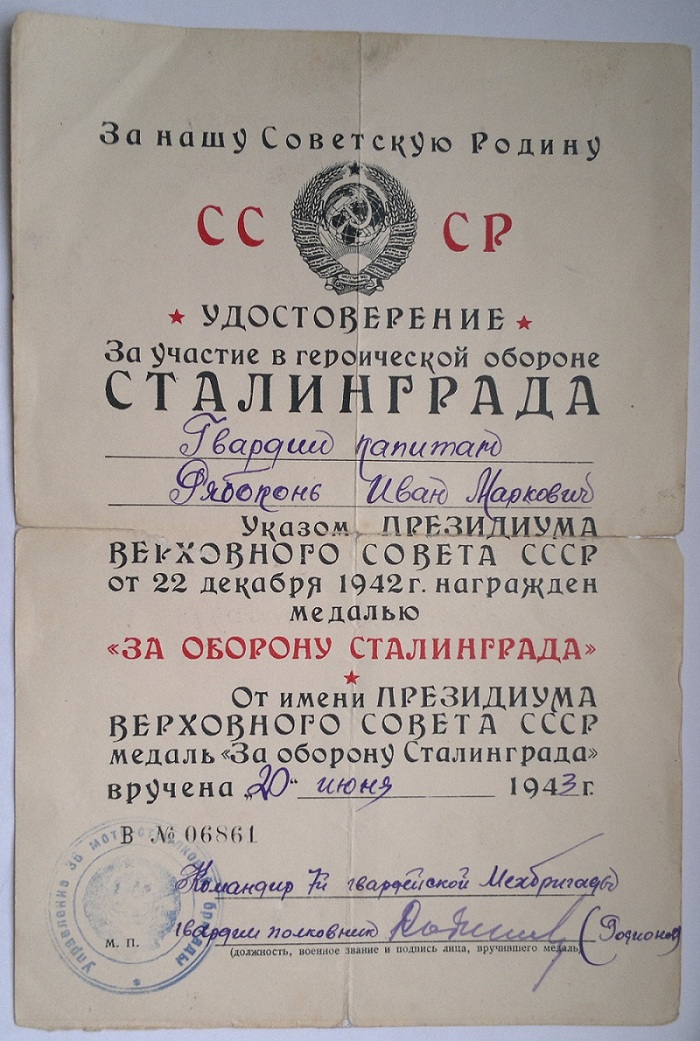 За нашу Советскую Родину
СССР
УДОСТОВЕРЕНИЕ
За участие в героической обороне
СТАЛИНГРАДА
Гвардии капитан
Рябоконь Иван Маркович
Указом ПРЕЗИДИУМА
ВЕРХОВНОГО СОВЕТА СССР
от 22 декабря 1942 г. награжден
медалью
«ЗА ОБОРОНУ СТАЛИНГРАДА»
От имени ПРЕЗИДИУМА
ВЕРХОВНОГО СОВЕТА СССР
медаль «За оборону Сталинграда»
вручена „20“ июня 1943 г.
В № 06861
Командир 7й гвардейской Мехбригады
гвардии полковник (Родионов)
(должность, военное звание и подпись лица, вручившего медаль)
М. П.
Управление 36 мотострелковой бригады